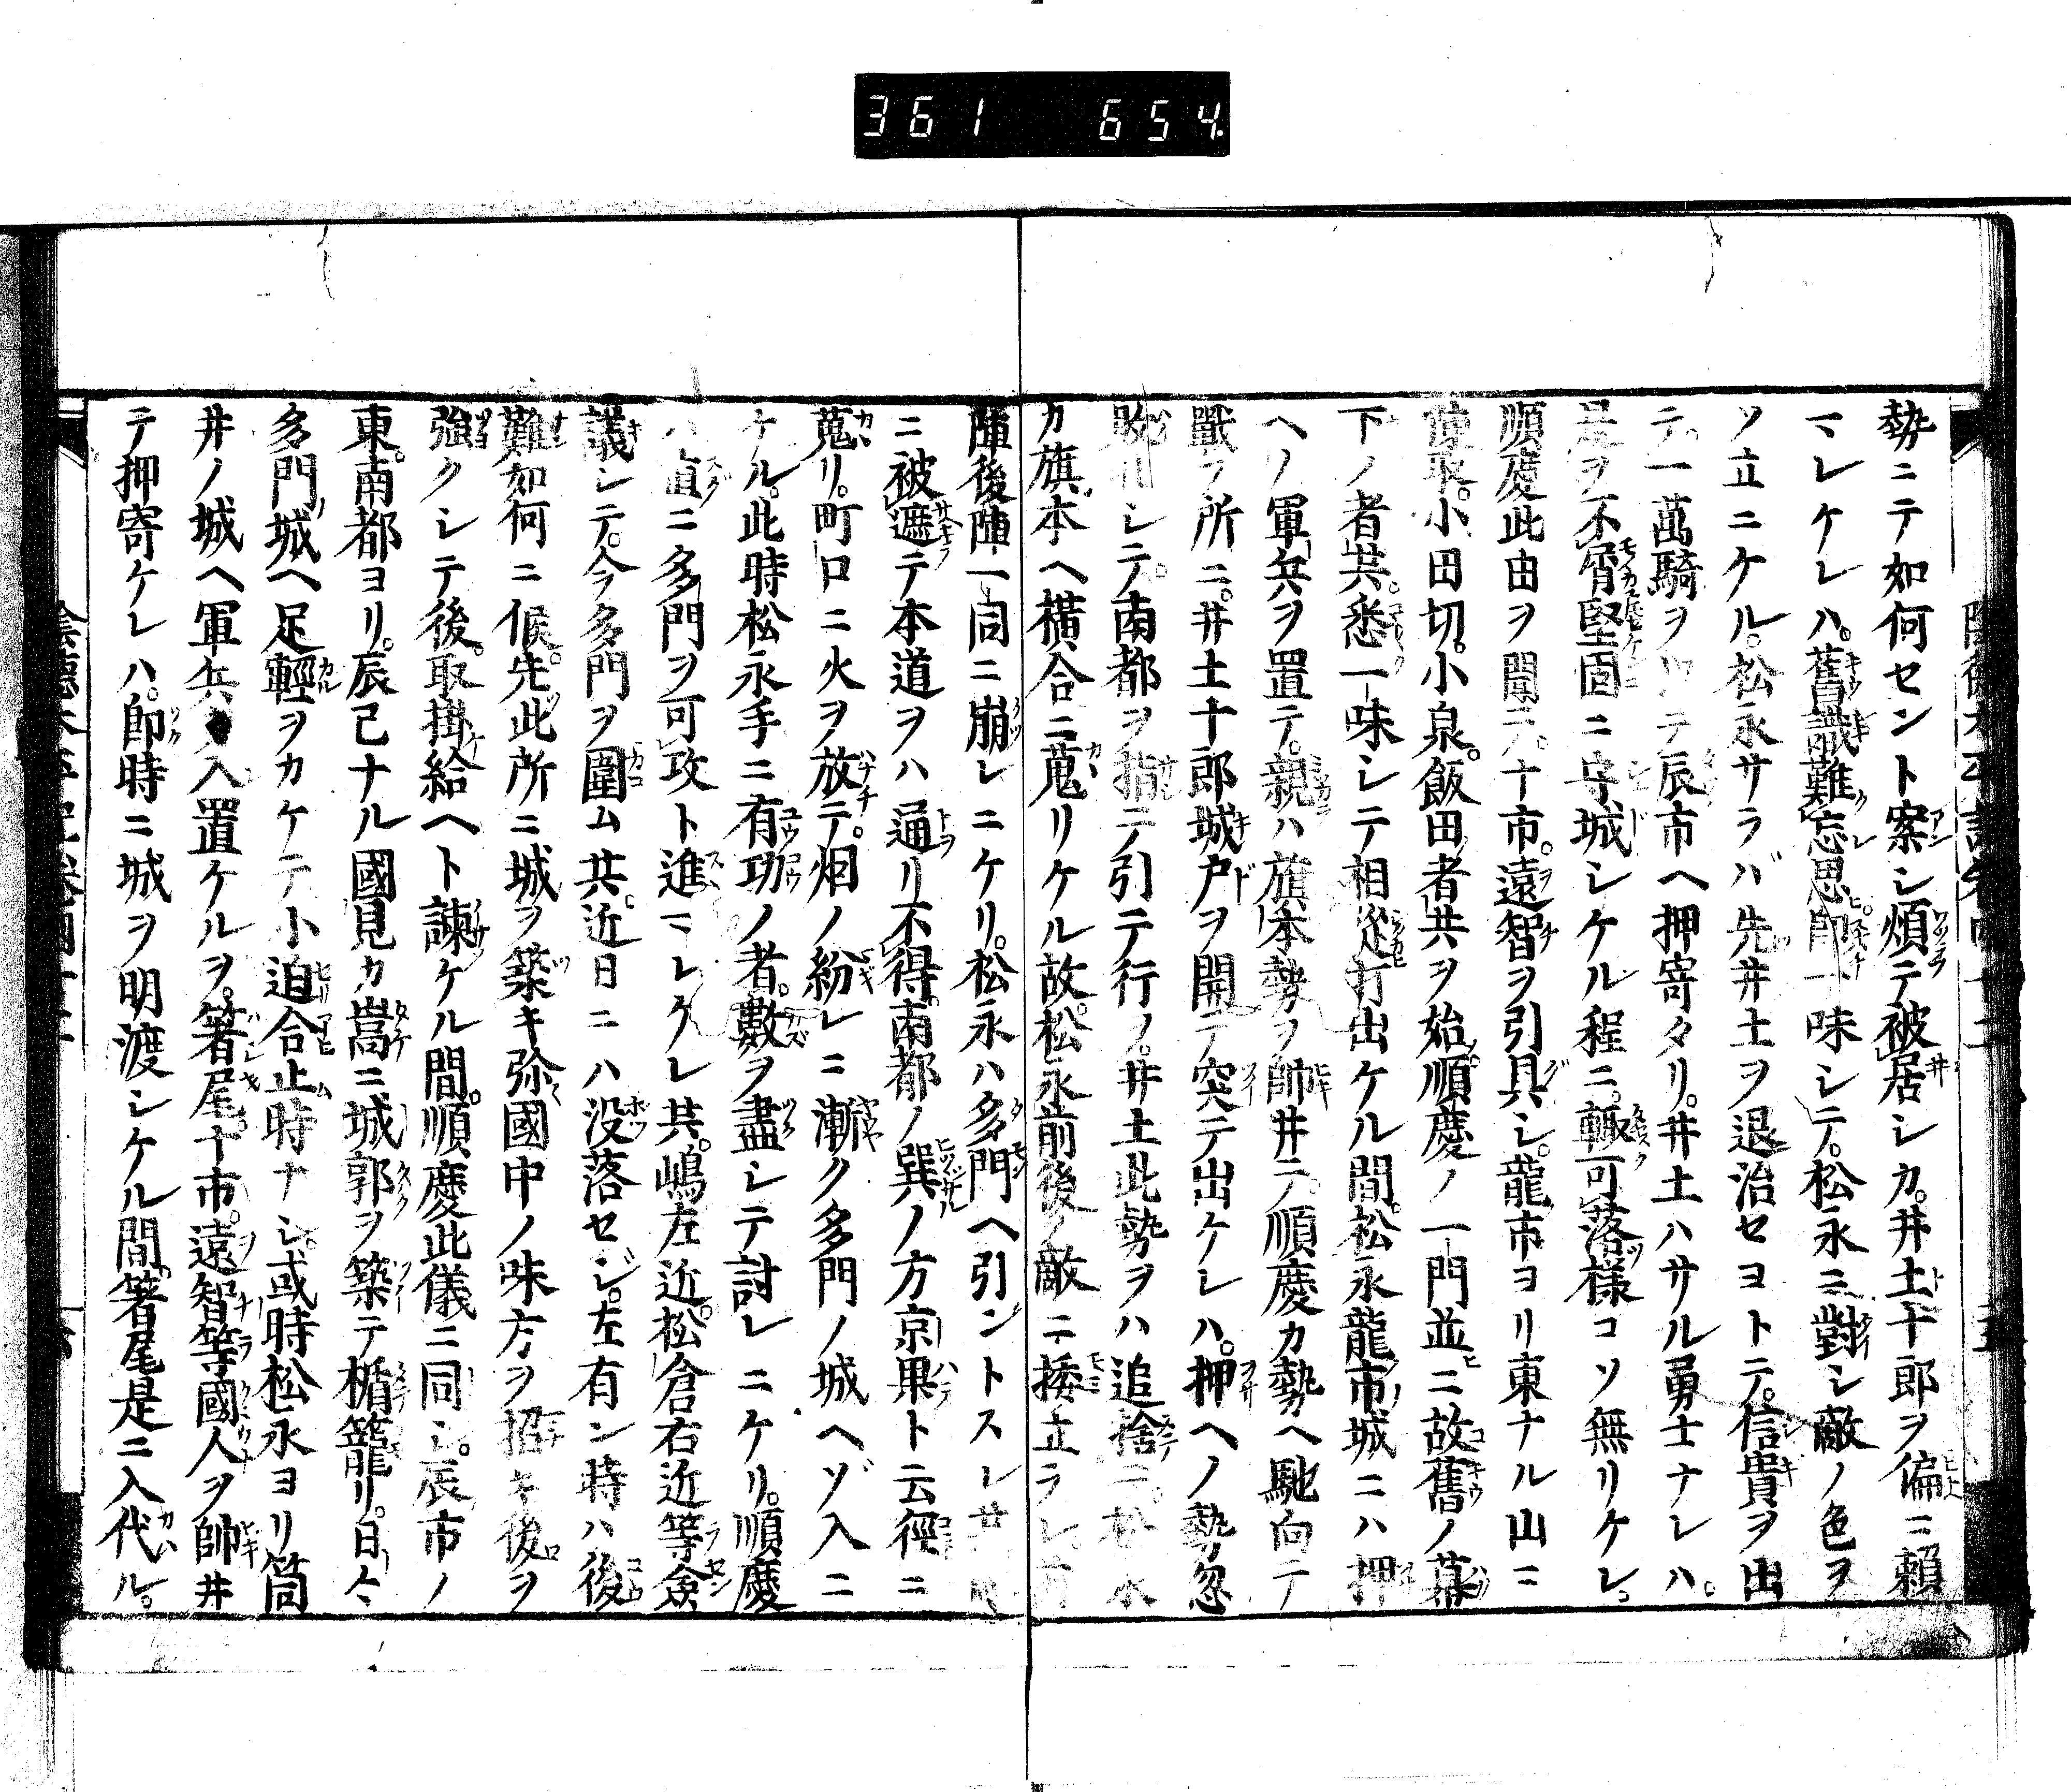 361 654
勢ニテ如何セント案シ煩テ被居シカ。井土十郎ヲ偏ニ頼
マレケレハ。舊識難忘思即一味シテ。松永ニ對シ敵ノ色ヲ
ソ立ニケル。松永サラバ先井土ヲ退治セヨトテ。信貴ヲ出
テ。一萬騎ヲ テ辰市ヘ押寄タリ。井土ハサル勇士ナレハ。
是ヲ不屑堅固ニ守城シケル程ニ。輙可落様コソ無リケレ。
順慶此由ヲ聞テ。十市。遠智ヲ引具シ。龍市ヨリ東ナル山ニ
陣取。小田切。小泉。飯田者共ヲ始。順慶ノ一門並ニ故舊ノ幕
下ノ者共。悉一味シテ相従打出ケル間。松永龍市城ニハ押
ヘノ軍兵ヲ置テ。親ハ旗本勢ヲ帥井テ。順慶カ勢ヘ馳向テ
戰フ所ニ。井土十郎城戸ヲ開テ突テ出ケレハ。押ヘノ勢忽
敗 シテ。南都ヲ指テ引テ行ク。井土此勢ヲハ追捨テ。松永
カ旗本ヘ横合ニ蒐リケル故。松永前後ノ敵ニ揉立ラレ。前
陣後陣一同ニ崩レニケリ。松永ハ多門ヘ引ントスレ共
ニ被遮テ本道ヲハ通リ不得。南都ノ巽ノ方京果ト云徑ニ
蒐リ。町口ニ火ヲ放テ。烟ノ紛レニ漸ク多門ノ城ヘゾ入ニ
ケル。此時松永手ニ有功ノ者。數ヲ盡シテ討レニケリ。順慶
ハ直ニ多門ヲ可攻ト進マレケレ共。嶋左近。松倉右近等僉
議シテ。今多門ヲ圍ム共。近日ニハ没落セジ。左有ン時ハ後
難如何ニ候。先此所ニ城ヲ築キ弥國中ノ味方ヲ招キ後ヲ
強クシテ後。取掛給ヘト諫ケル間。順慶此儀ニ同シ。辰市ノ
東。南都ヨリ。辰巳ナル國見カ嵩ニ城郭ヲ築テ楯籠リ。日々
多門ノ城ヘ足輕ヲカケテ小迫合止時ナシ。或時松永ヨリ筒
井ノ城ヘ軍兵ヲ入置ケルヲ。箸尾。十市。遠智等國人ヲ帥井
テ押寄ケレハ。即時ニ城ヲ明渡シケル間。箸尾是ニ入代ル。